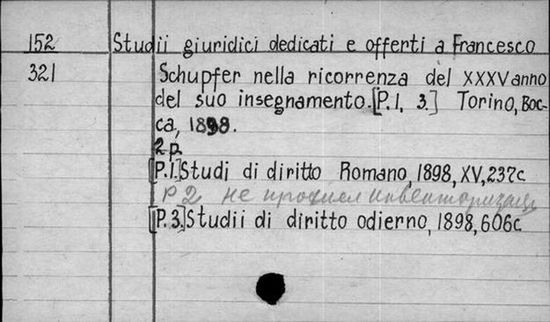 152 Studii giuridici dedicati e offerti a Francesco
321 Schupfer nella ricorrenza del XXXV anno
del suo insegnamento. [P. 1, 3.] Torino, Boc-
ca, 1898.
2 p.
[P.1.] Studi di diritto Romano, 1898, XV, 237c
P 2 не прошел инвентаризац
[P.3.] Studii di diritto odierno, 1898, 606c